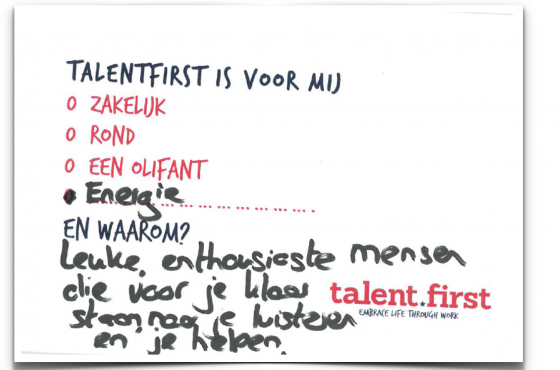 TALENTFIRST IS VOOR MIJ
O ZAKELIJK
O ROND
O EEN OLIFANT
O Energie
EN WAAROM?
Leuke, enthousiaste mensen
die voor je klaar
staan, naar je luisteren
en je helpen.
talent.first
EMBRACE LIFE THROUGH WORK